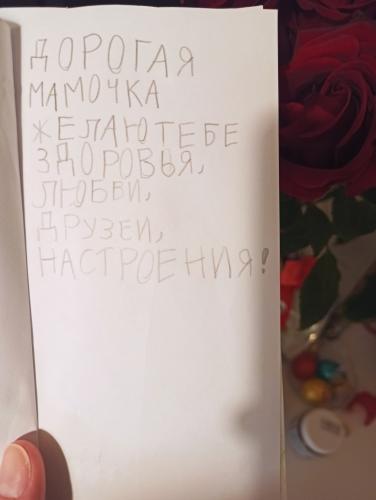 ДОРОГАЯ
МАМОЧКА
ЖЕЛАЮ ТЕБЕ
ЗДОРОВЬЯ,
ЛЮБВИ,
ДРУЗЕЙ,
НАСТРОЕНИЯ!